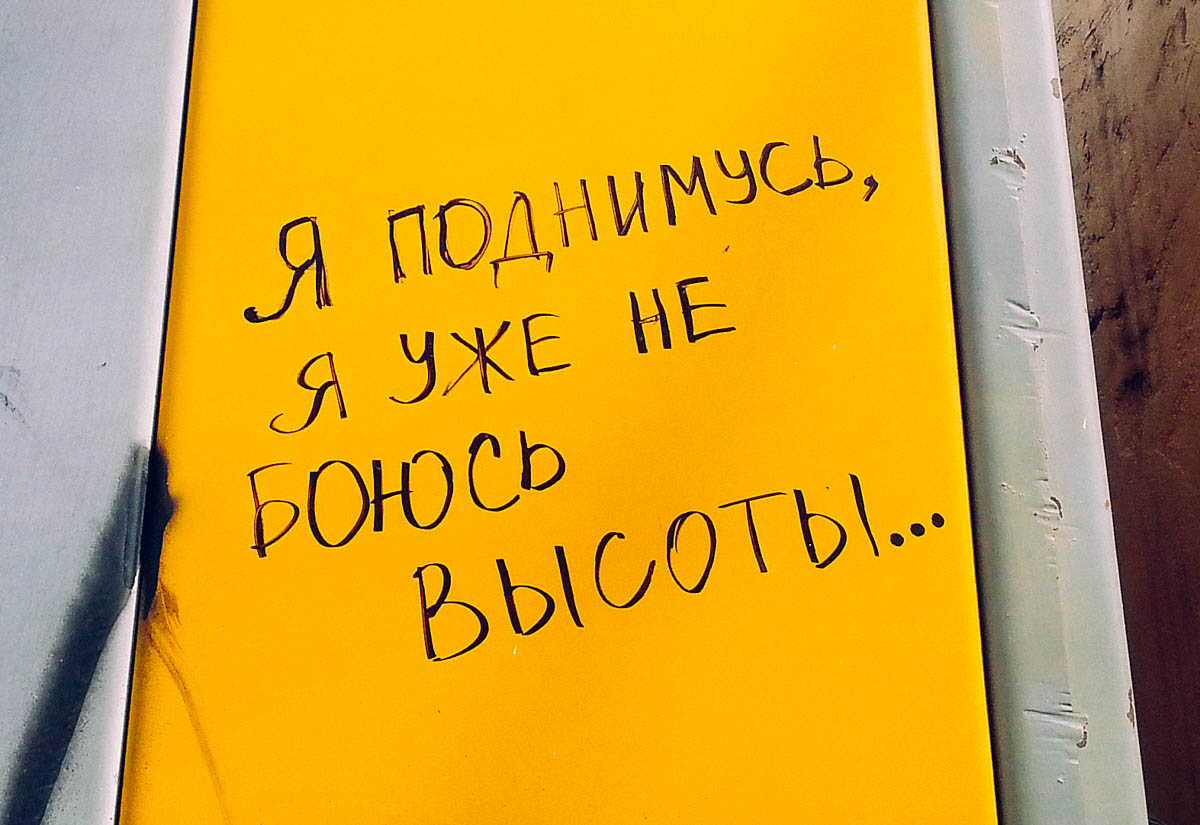 Я ПОДНИМУСЬ,
Я УЖЕ НЕ
БОЮСЬ
ВЫСОТЫ...